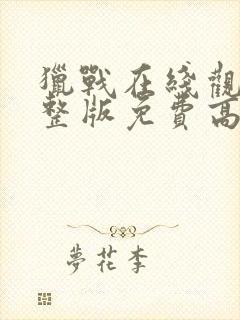 獵戰在綫觀
整版免費高
夢花李